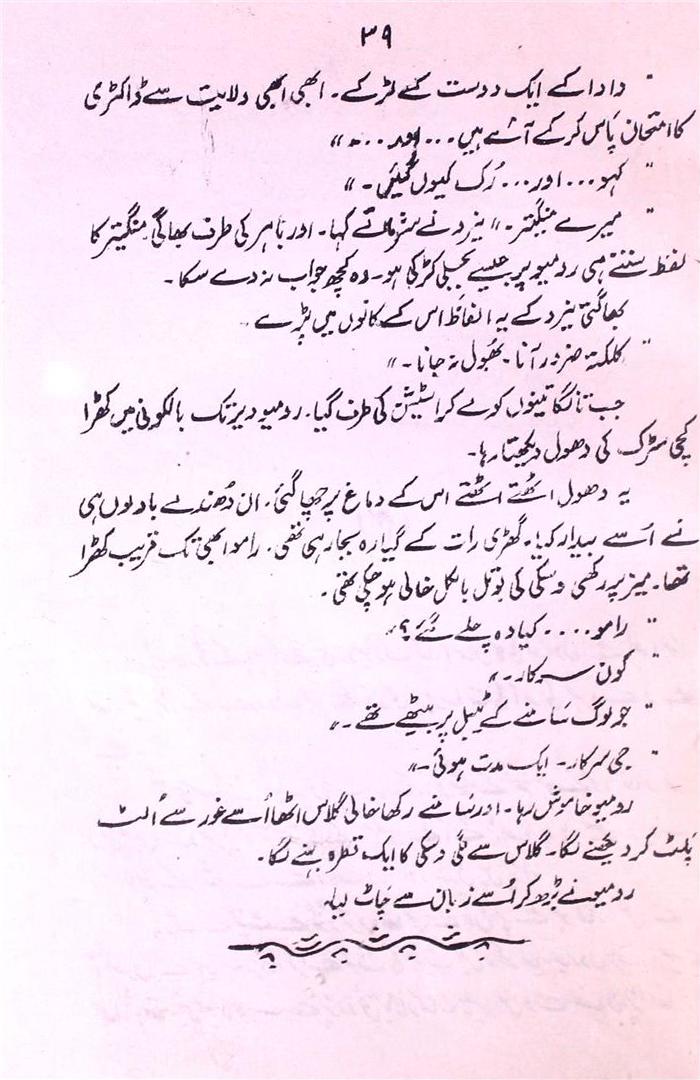 ۳۹
" دادا کے ایک دوست کے لڑکے۔ ابھی ابھی ولایت سے ڈاکٹری
کا امتحان پاس کر کے آئے ہیں ... اور ... "
" کہو ... اور ... رُک کیوں گئیں۔ "
" میرے منگیتر۔ " نیرد نے شرماتے کہا۔ اور باہر کی طرف بھاگی منگیتر کا
لفظ سنتے ہی رومیو پر جیسے بجلی کڑکی ہو۔ وہ کچھ جواب نہ دے سکا۔
بھاگتی نیرد کے یہ الفاظ اس کے کانوں میں پڑے
" کلکتہ ضرور آنا۔ بھول نہ جانا۔ "
جب تانگا تینوں کو لے کر اسٹیشن کی طرف گیا۔ رومیو دیر تک بالکونی میں کھڑا
کچی سڑک کی دھول دیکھتا رہا۔
یہ دھول اٹھتے اٹھتے اس کے دماغ پر چھا گئی۔ ان دُھندلے بادلوں ہی
نے اُسے بیدار کیا۔ گھڑی رات کے گیارہ بجا رہی تھی۔ رامو ابھی تک قریب کھڑا
تھا۔ میز پر رکھی وہسکی کی بوتل بالکل خالی ہو چکی تھی۔
" رامو .... کیا وہ چلے گئے؟ "
" کون سرکار۔ "
" جو لوگ سامنے کے ٹیبل پر بیٹھے تھے۔ "
" جی سرکار۔ ایک مدت ہوئی۔ "
رومیو خاموش رہا۔ اور سامنے رکھا خالی گلاس اٹھا اُسے غور سے اُلٹ
پلٹ کر دیکھنے لگا۔ گلاس سے لگی وسکی کا ایک قطرہ بہنے لگا۔
رومیو نے بڑھ کر اُسے زبان سے چاٹ لیا۔